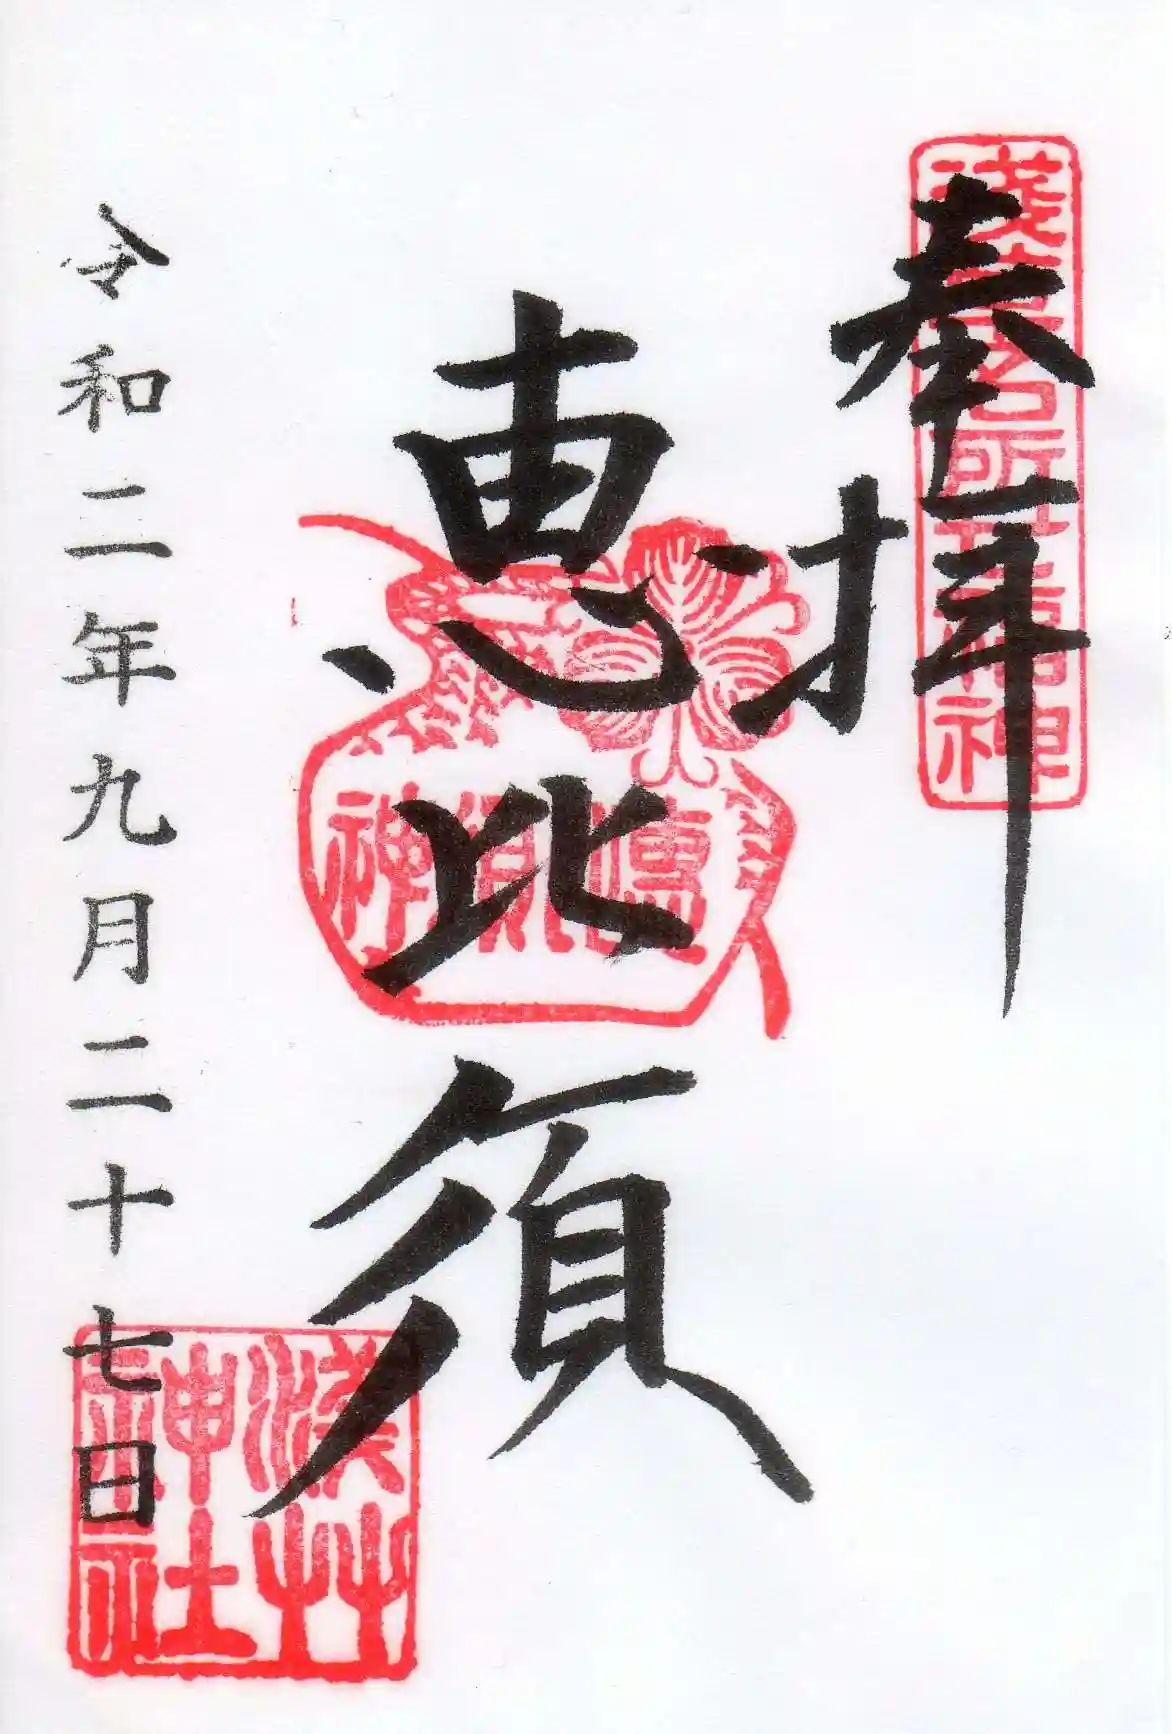 奉拝
浅草名所七福神
恵比須
恵比須神
浅草神社
令和二年九月二十七日